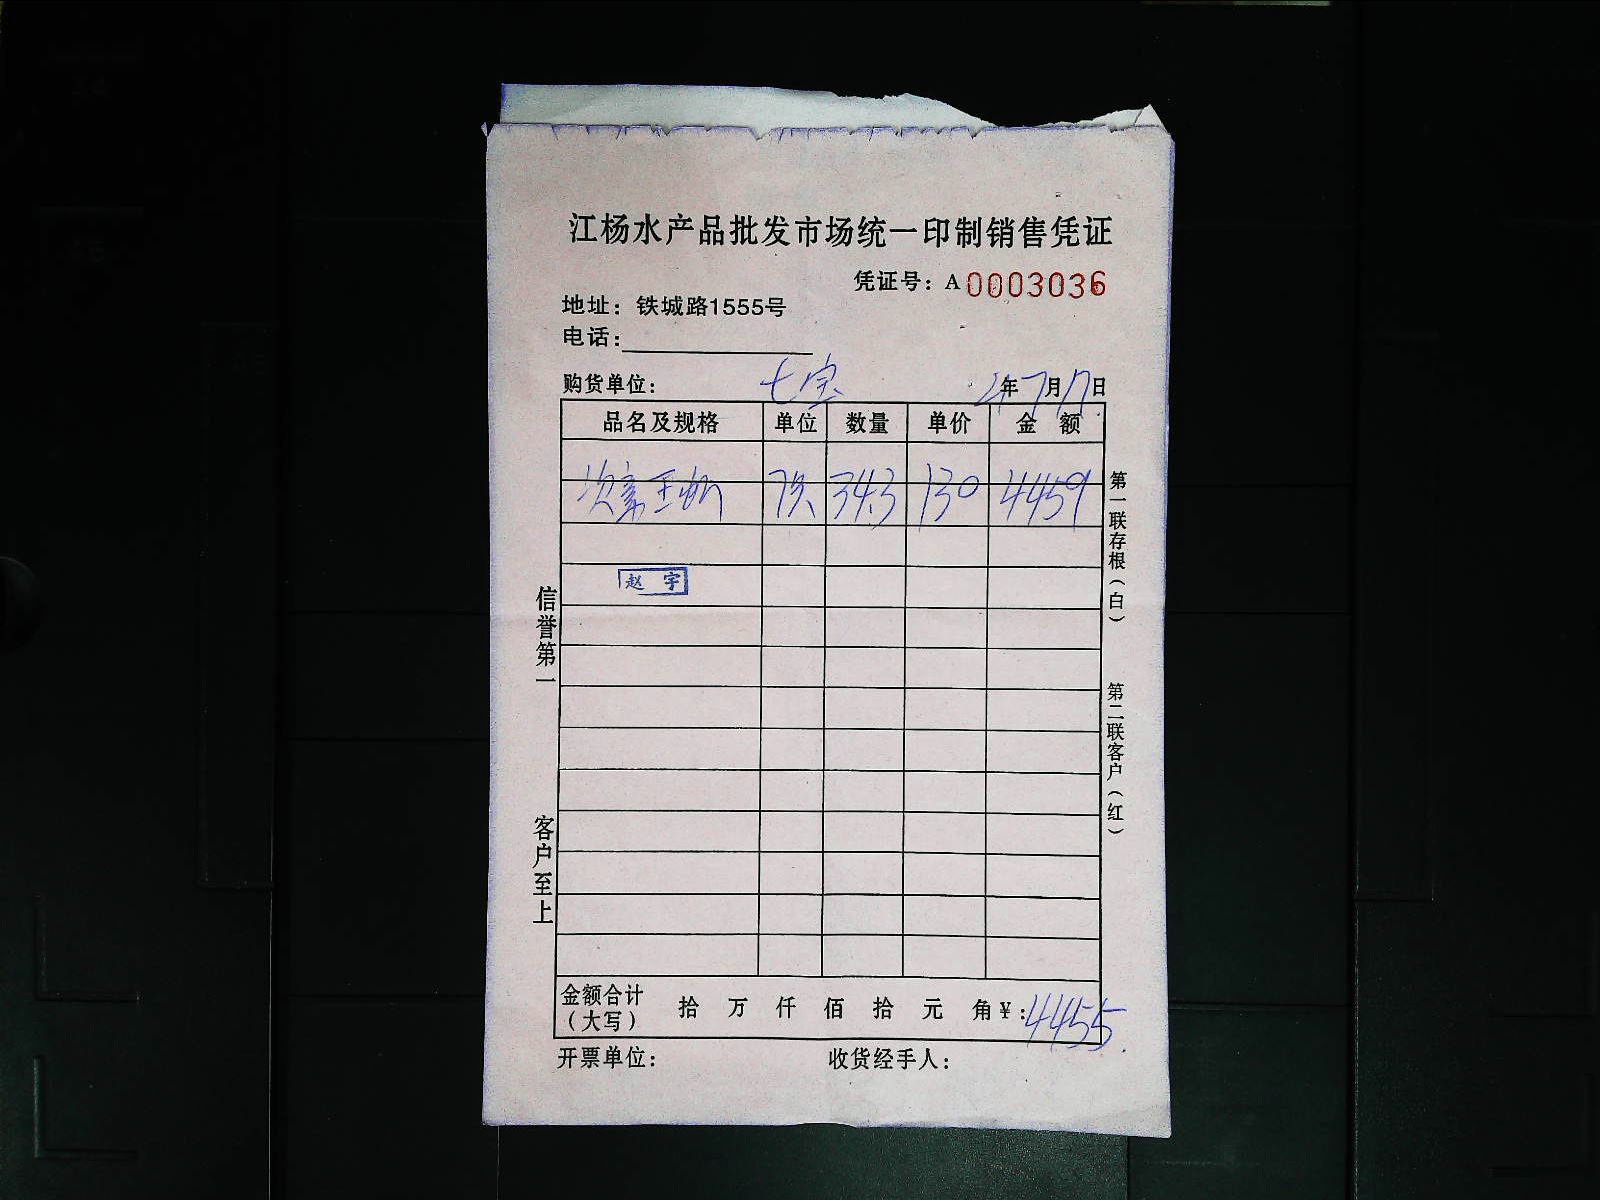 江杨水产品批发市场统一印制销售凭证
凭证号：A 0003036
地址：铁城路1555号
电话：
购货单位： 七宝 21年7月17日
品名及规格 单位 数量 单价 金额
34.3 130 4459
赵宇
信誉第一
客户至上
第一联存根（白）
第二联客户（红）
金额合计（大写） 拾 万 仟 佰 拾 元 角 ¥：4455.
开票单位： 收货经手人：